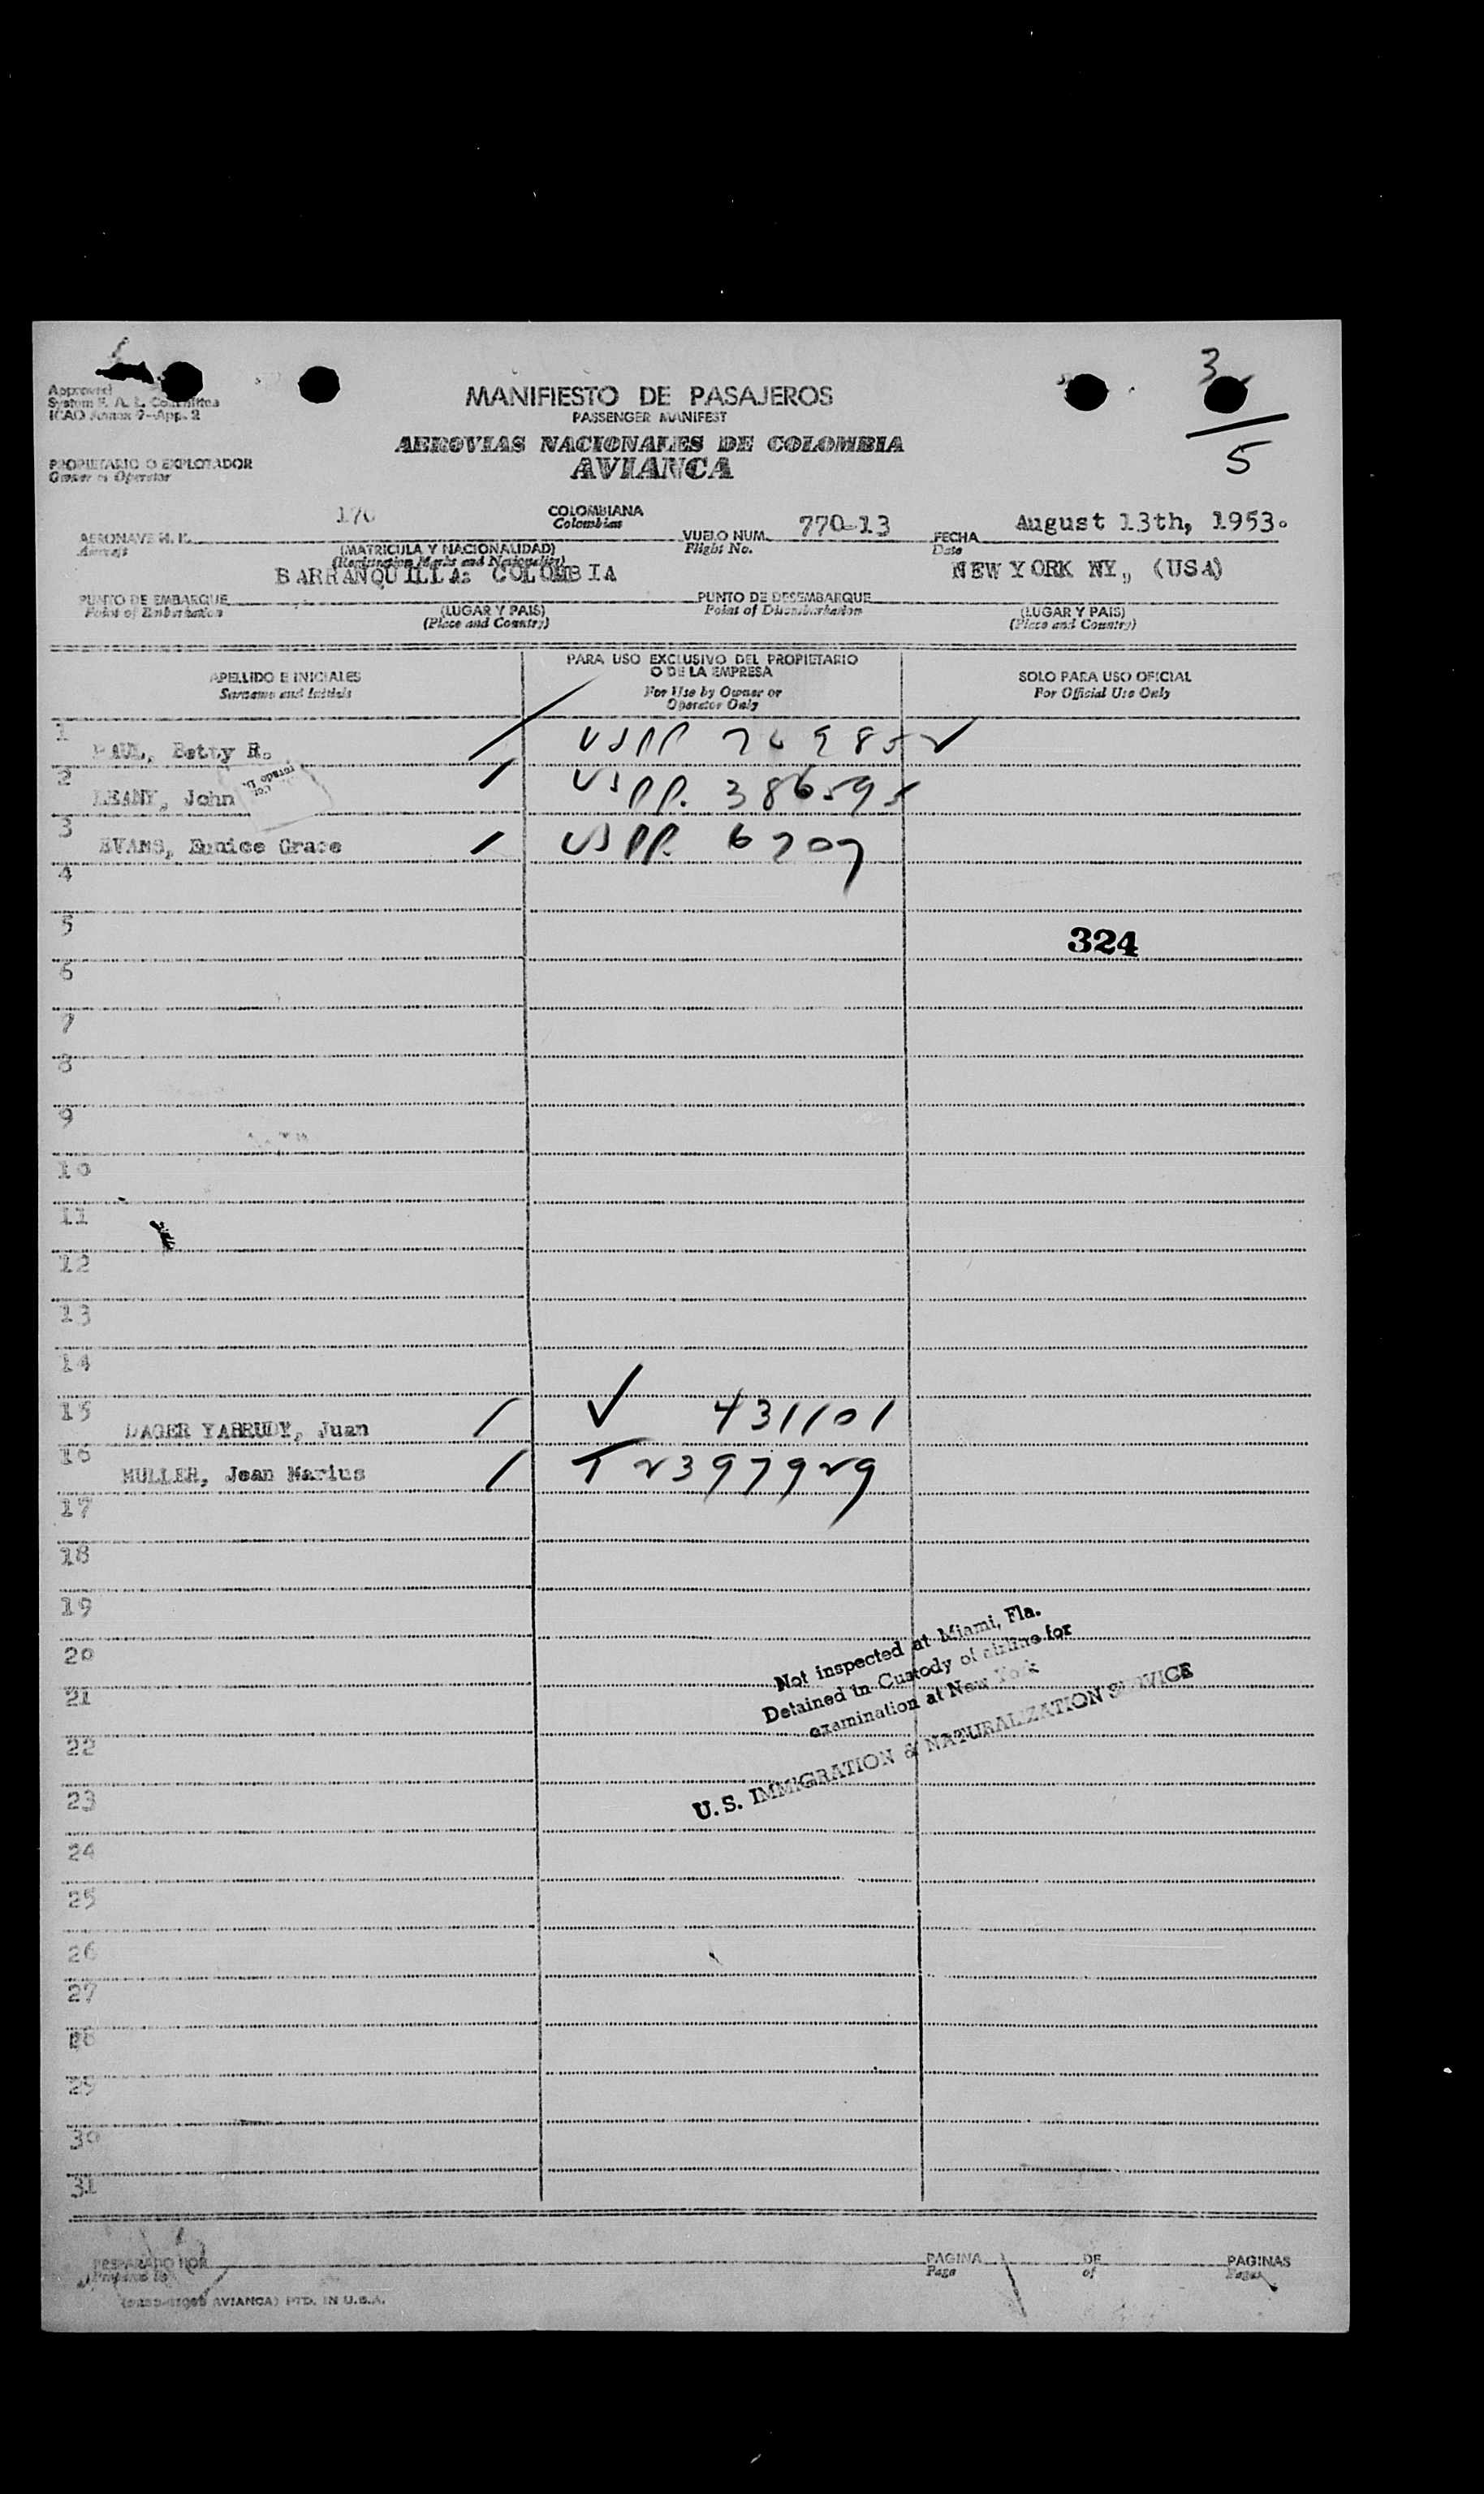 3
2
5
Approved
System F. A. L. Committee
ICAO Annex 9-App. 2
MANIFIESTO DE PASAJEROS
PASSENGER MANIFEST
AEROVIAS NACIONALES DE COLOMBIA
AVIANCA
PROPIETARIO O EXPLOTADOR
Owner or Operator
170 COLOMBIANA 770-13 August 13th, 1953.
Colombian
AERONAVE H. K. VUELO NUM. FECHA
Aircraft (MATRICULA Y NACIONALIDAD) Flight No. Date
(Registration Marks and Nationality)
BARRANQUILLA: COLOMBIA NEW YORK NY,, (USA)
PUNTO DE EMBARQUE PUNTO DE DESEMBARQUE
Point of Embarkation (LUGAR Y PAIS) Point of Disembarkation (LUGAR Y PAIS)
(Place and Country) (Place and Country)
APELLIDO E INICIALES PARA USO EXCLUSIVO DEL PROPIETARIO SOLO PARA USO OFICIAL
O DE LA EMPRESA
Surname and Initials For Use by Owner or For Official Use Only
Operator Only
1 PAUL, Betty R. USPP 76985
2 LEANY, John USPP. 386595
3 EVANS, Eunice Grace USPP. 6707
4
5 324
6
7
8
9
10
11
12
13
14
15 DAGER YABRUDY, Juan 431101
16 MULLER, Jean Marius T 2397929
17
18
19
20
21
22
23
24
25
26
27
28
29
30
31
Not inspected at Miami, Fla.
Detained in Custody of airline for
examination at New York
U.S. IMMIGRATION & NATURALIZATION SERVICE
PREPARADO POR PAGINA DE PAGINAS
Prepared by Page of Pages
AVIANCA) PTD. IN U.S.A.